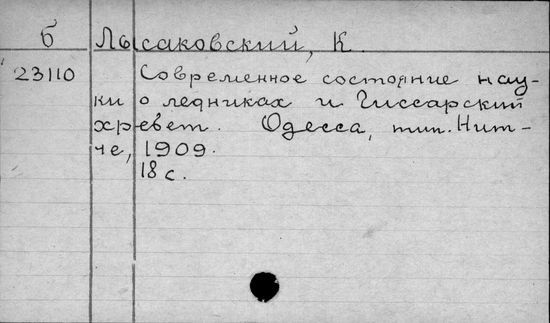 б Лысаковский, К.
23110 Современное состояние нау-
ки о ледниках и Гиссарский
хребет. Одесса, тип. Нит-
че, 1909.
18 с.